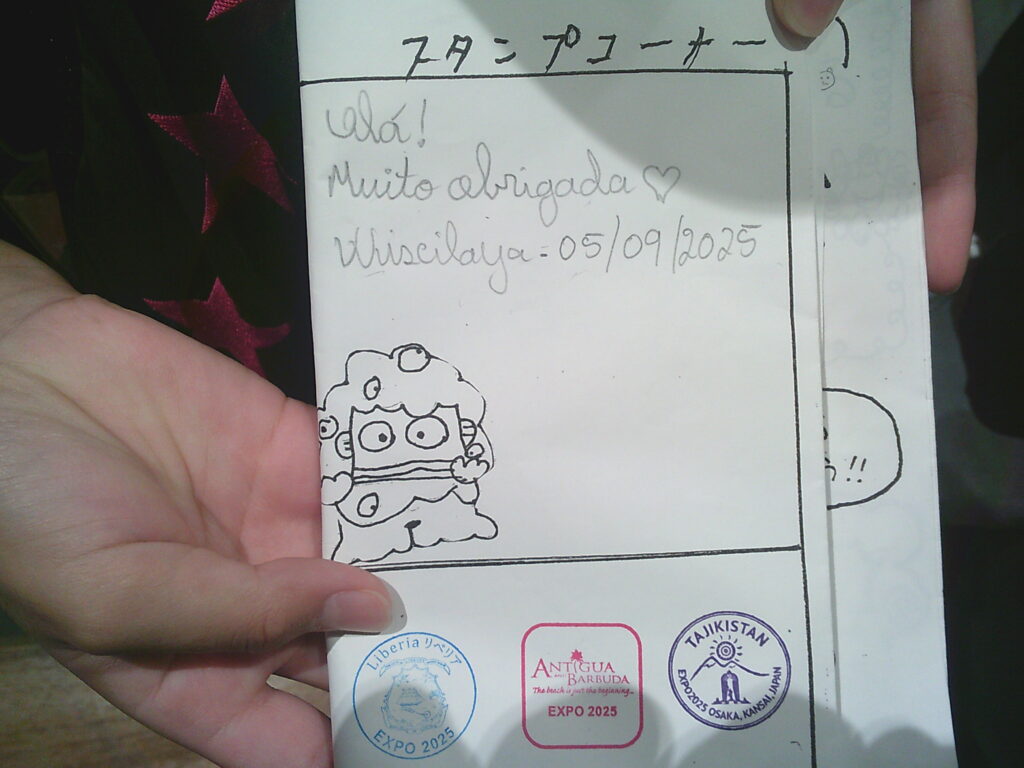 スタンプコーナー
Olá!
Muito obrigada ♡
Khriscilaya = 05/09/2025
!!
Liberia リベリア
EXPO 2025
ANTIGUA AND BARBUDA
The beach is just the beginning...
EXPO 2025
TAJIKISTAN
EXPO2025 OSAKA, KANSAI, JAPAN